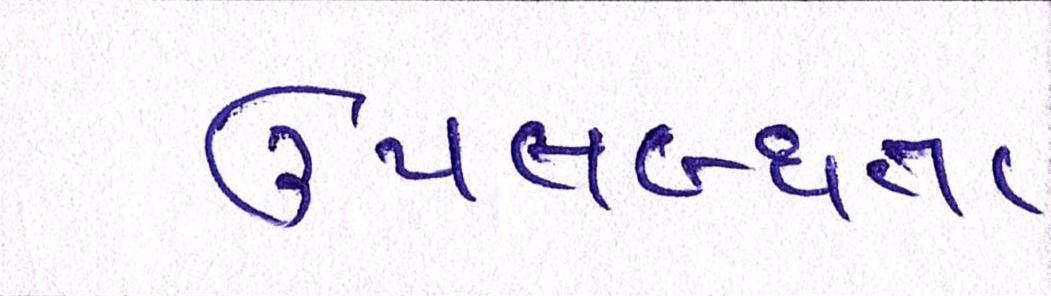 ઉપલબ્ધતા